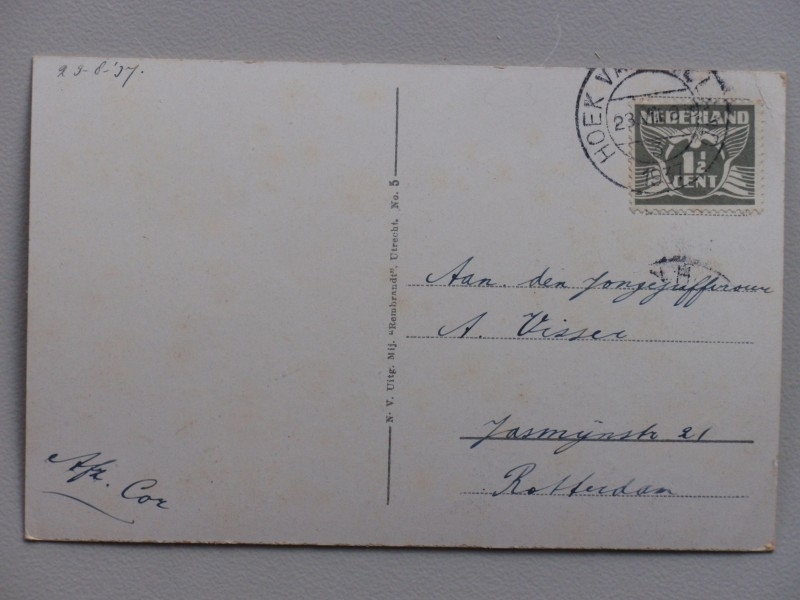 23-8-'37.
HOEK VAN
23
NEDERLAND
1½
CENT
N. V. Uitg. Mij. "Rembrandt", Utrecht, No. 5
Aan den Jongejuffrouw
A. Visser
Jasmijnstr 21
Rotterdam
Afz. Cor